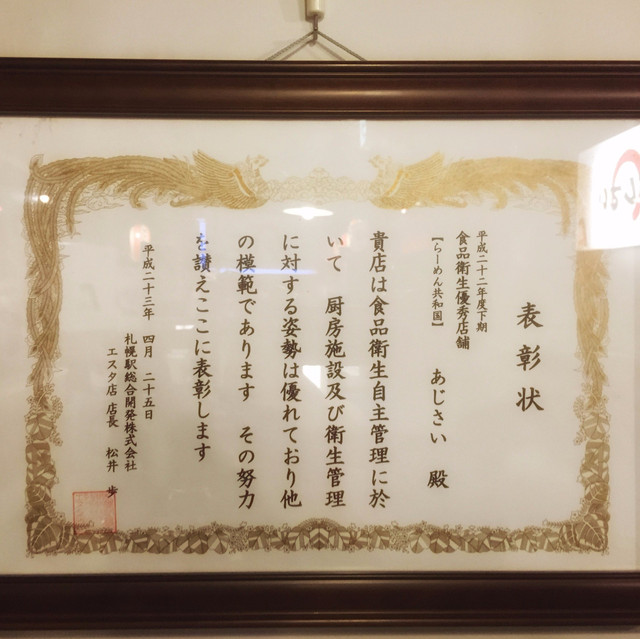 表彰状
平成二十二年度下期
食品衛生優秀店舗
【らーめん共和国】
あじさい 殿
貴店は食品衛生自主管理に於
いて 厨房施設及び衛生管理
に対する姿勢は優れており他
の模範であります その努力
を讃えここに表彰します
平成二十三年 四月 二十五日
札幌駅総合開発株式会社
エスタ店 店長 松井 歩